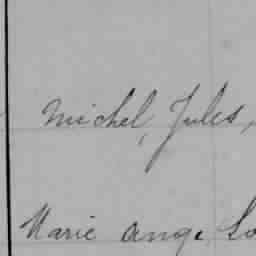 Michel, Jules,
Marie Ange